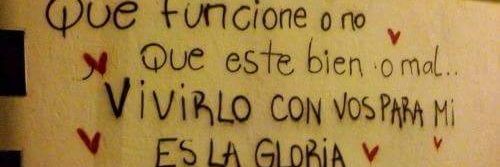 Que funcione o no
Que este bien o mal..
VIVIRLO CON VOS PARA Mi
ES LA GLORIA